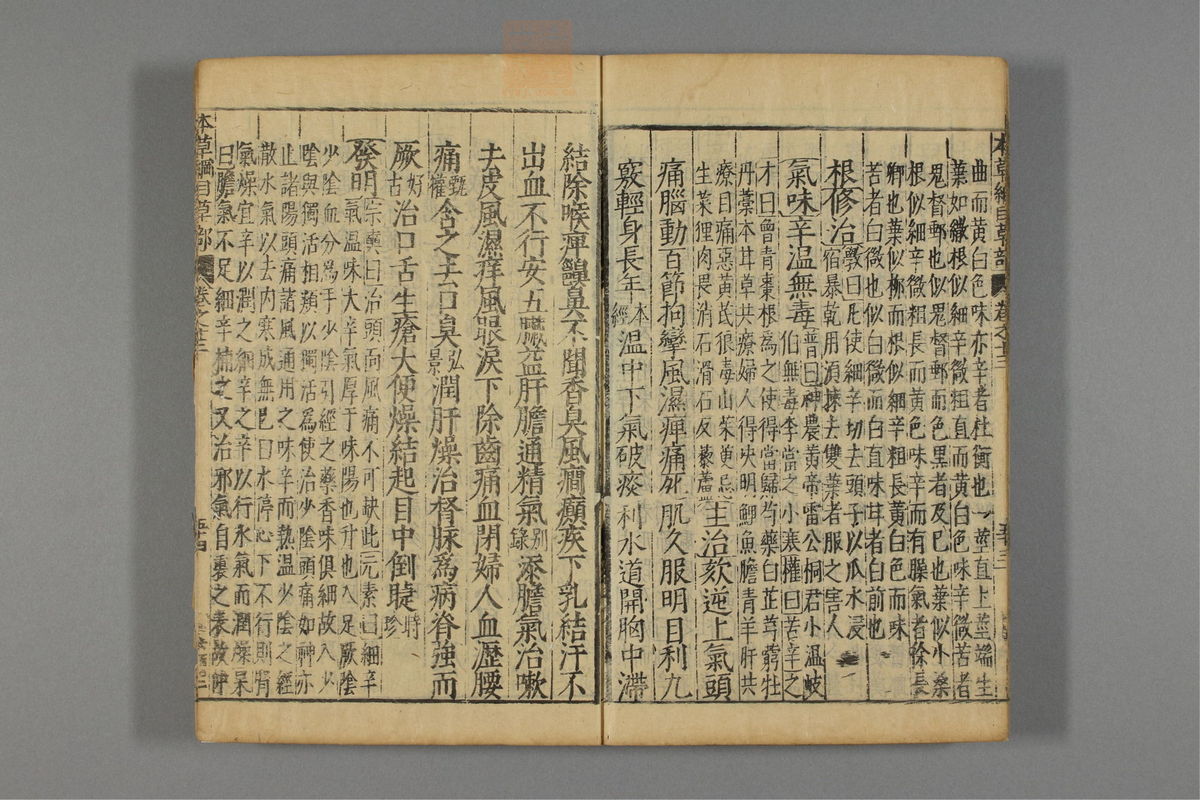 本草綱目草部 卷之十三 五十三
曲而黃白色味亦辛者杜衡也一莖直上莖端生
葉如繖根似細辛微粗直而黃白色味辛微苦者
鬼督郵也似鬼督郵而色黑者及巳也葉似小桑
根似細辛微粗長而黃色味辛而有臊氣者徐長
卿也葉似柳而根似細辛粗長黃白色而味
苦者白微也似白微而白直味甘者白前也
根修治斅曰凡使細辛切去頭子以瓜水浸
宿暴乾用湏揀去雙葉者服之害人
氣味辛温無毒普曰神農黃帝雷公桐君小温岐
伯無毒李當之小寒權曰苦辛之
才曰曾青棗根爲之使得當歸芍藥白芷芎藭牡
丹藁本甘草共療婦人得决明鯉魚膽青羊肝共
療目痛惡黃芪狼毒山茱萸忌
生菜狸肉畏消石滑石反藜蘆
主治欬逆上氣頭
痛腦動百節拘攣風濕痺痛死肌久服明目利九
竅輕身長年本經温中下氣破痰利水道開胸中滯
結除喉痺齆鼻不聞香臭風癇癲疾下乳結汗不
出血不行安五臟益肝膽通精氣别錄添膽氣治嗽
去皮風濕痒風眼淚下除齒痛血閉婦人血瀝腰
痛甄權含之去口臭弘景潤肝燥治督脉爲病脊強而
厥好古治口舌生瘡大便燥結起目中倒睫時珍
發明宗奭曰治頭面風痛不可缺此元素曰細辛
氣温味大辛氣厚于味陽也升也入足厥陰
少陰血分爲手少陰引經之藥香味俱細故入少
陰與獨活相類以獨活爲使治少陰頭痛如神亦
止諸陽頭痛諸風通用之味辛而熱温少陰之經
散水氣以去内寒成無巳曰水停心下不行則腎
氣燥宜辛以潤之細辛之辛以行水氣而潤燥杲
曰膽氣不足細辛補之又治邪氣自裏之表故仲
本草綱目草部 卷之十三 五十四